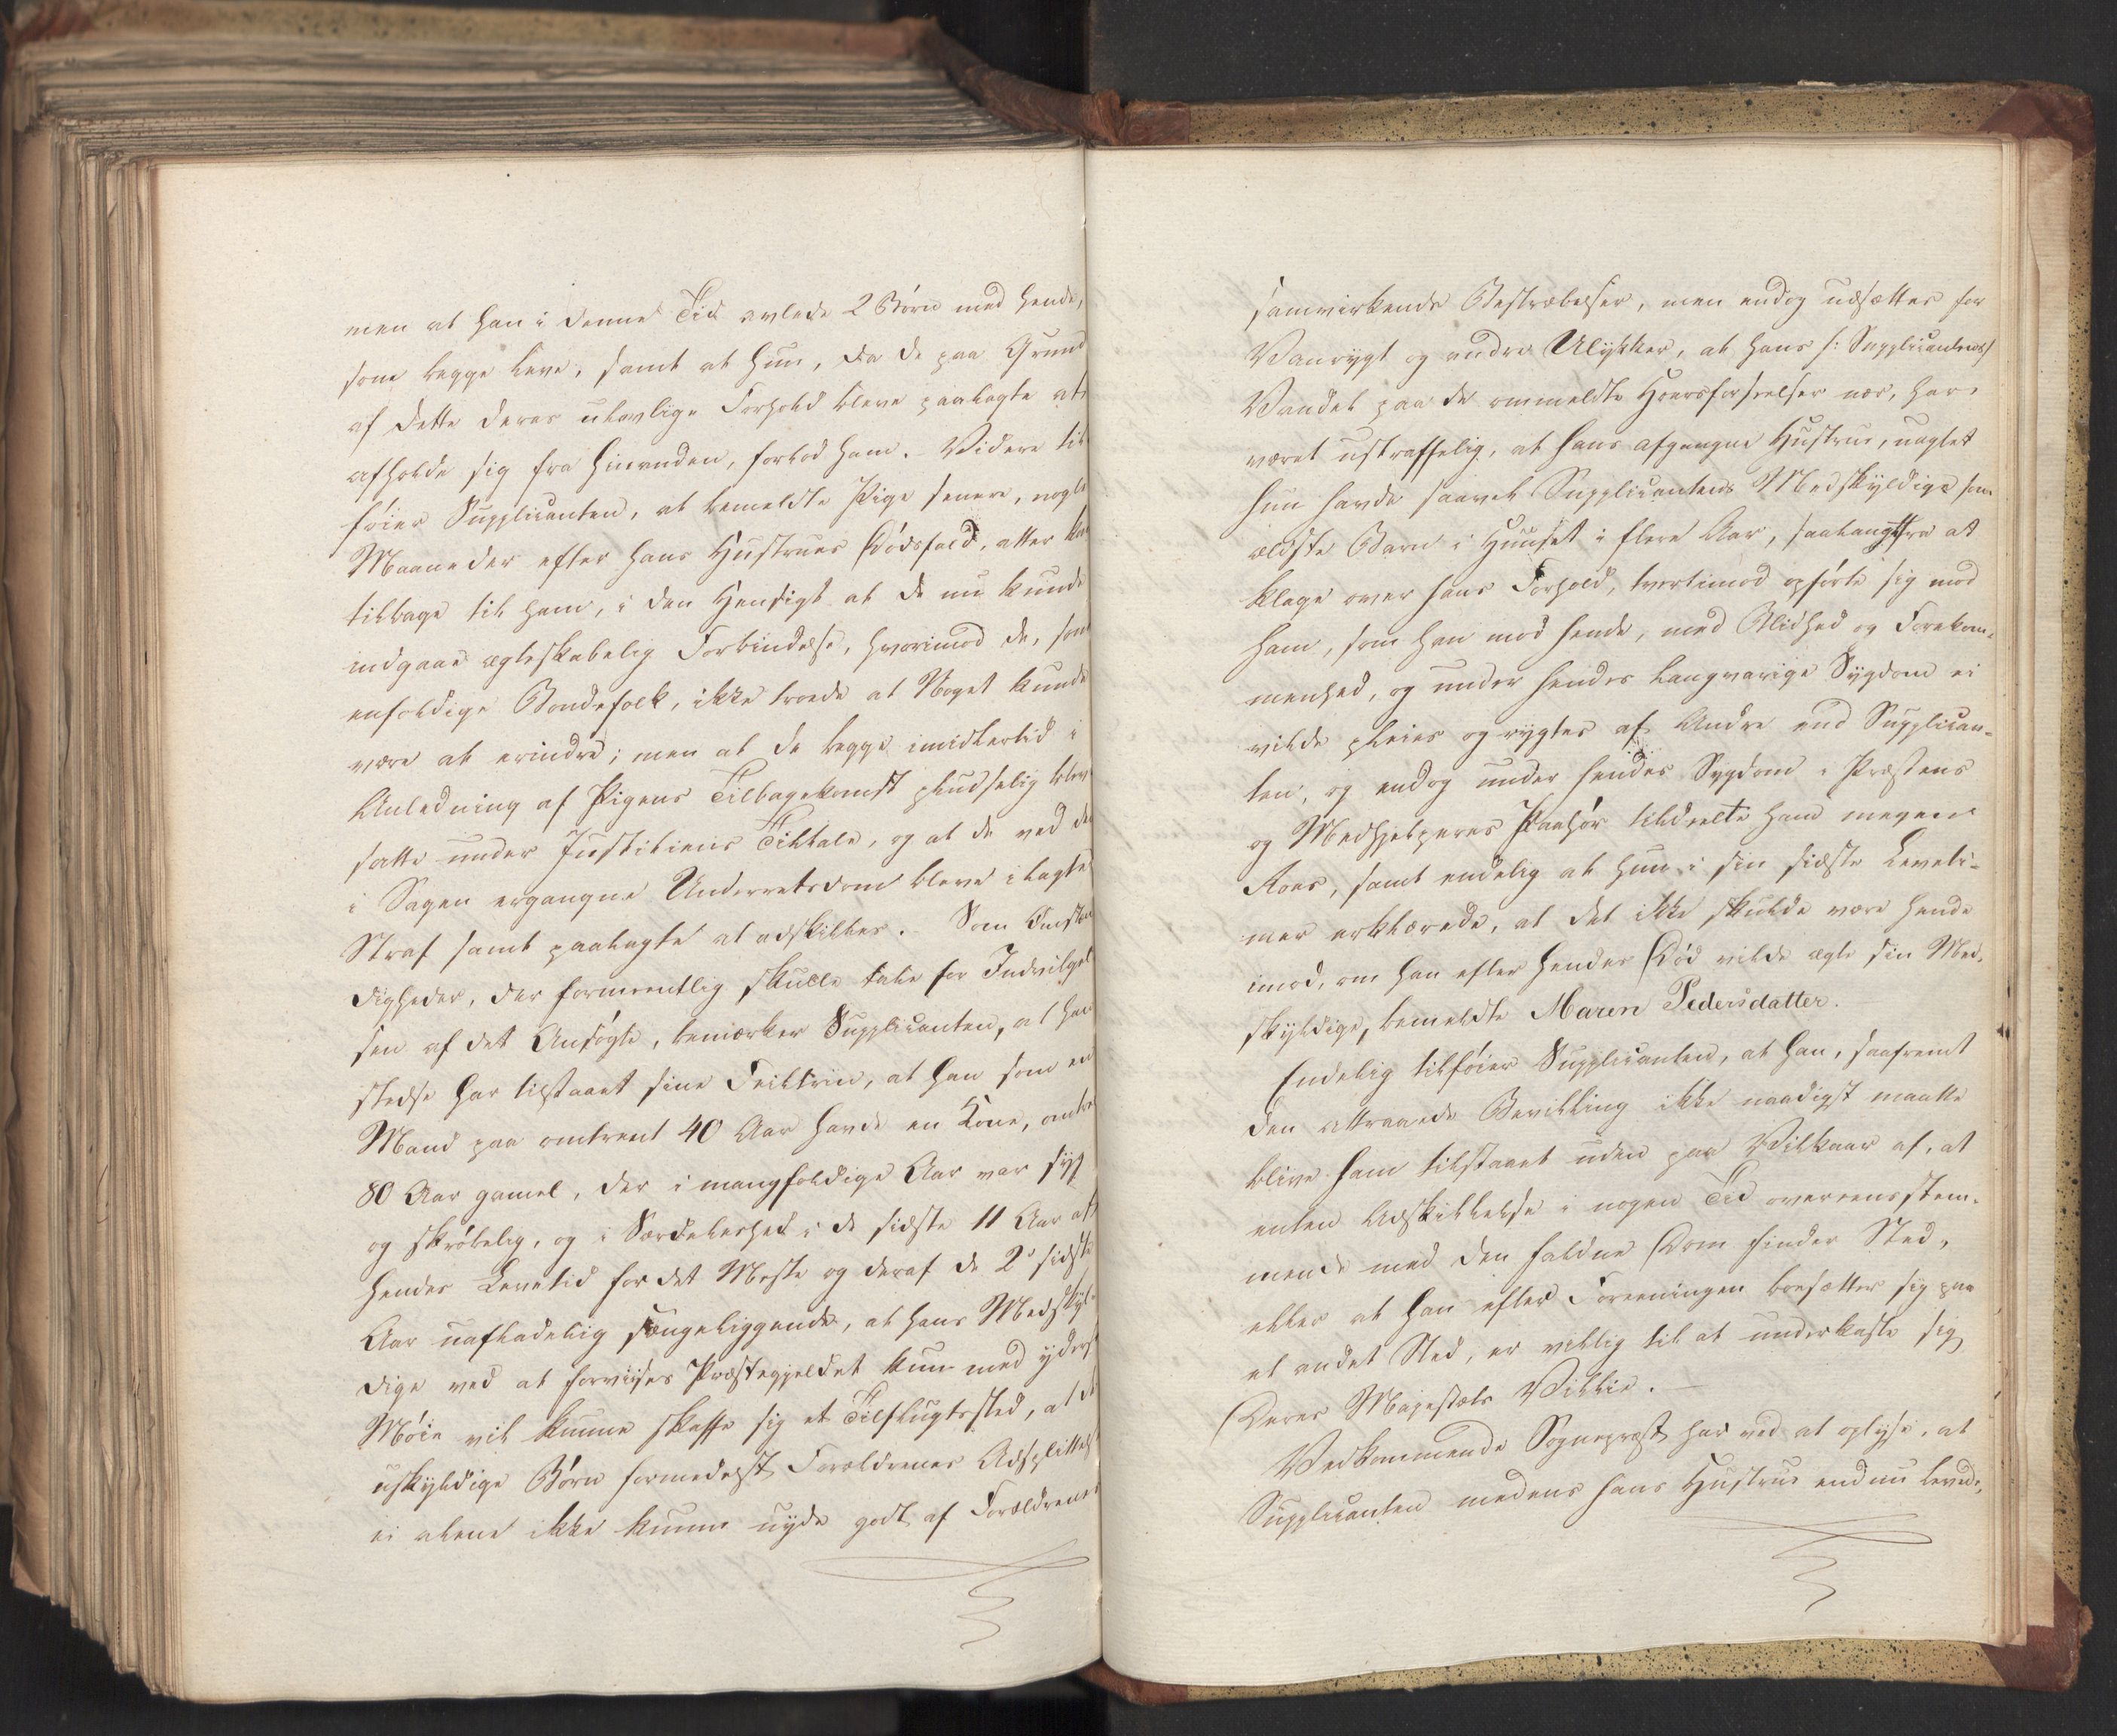 men at han i denne Tid avlede 2 Børn med hende,
som begge leve, samt at hun, da de paa Grund
af dette deres ulovlige Forhold bleve paalagte at
afholde sig fra hinanden, forlod ham. Videre til
føier Supplicanten, at bemeldte Pige senere, nogle
Maaneder efter hans Hustrues Dødsfald, atter kom
tilbage til ham, i den Hensigt at de nu kunde
indgaae ægteskabelig Forbindelse, hvorimod de, som
enfoldige Bondefolk, ikke troede at Noget kunde
være at erindre; men at de begge imidlertid i
Anledning af Pigens Tilbagekomst pludselig blev
satte under Justitiens Tiltale, og at de ved den
i Sagen ergangne Underretsdom bleve ilagte
Straf samt paalagte at adskilles. Som Omstæn
digheder, der formeentlig skulle tale for Indvilgel
sen af det Ansøgte, bemærker Supplicanten, at han
stedse har tilstaaet sine Feiltrin, at han som en
Mand paa omtrent 40 Aar havde en Kone, omtr
80 Aar gamel, der i mangfoldige Aar var syg
og skrøbelig, og i Særdeleshed i de sidste 11 Aar af
hendes Levetid for det Meste og deraf de 2 sidste
Aar uafladelig sængeliggende, at hans Medskyl-
dige ved at forviises Præstegjeldet kun med yders
Møie vil kunne skaffe sig et Tilflugtssted, at de
uskyldige Børn formedelst Forældrenes Adsplittelse
ei alene ikke kunne nyde godt af Forældrenes
samvirkende Bestræbelser, men endog udsættes for
Vanrygt og andre Ulykker, at hans /: Supplicantens /
Vandel paa de ommeldte Hoersforseelser nær, har
været ustraffelig, at hans afgangne Hustrue, uagtet
hun havde saavel Supplicantens Medskyldige som
ældste Barn i Huuset i flere Aar, saalangtfra at
klage over hans Forhold, tvertimod opførte sig mod
ham, som han mod hende, med Blidhed og Forekom-
menhed, og under hendes langvarige Sygdom ei
vilde pleies og rygtes af Andre end Supplican-
ten, og endog under hendes Sygdom i Præstens
og Medhjelperes Paahør tildeelte ham megen
Roes, samt endelig at hun i sin sidste Leveti-
mer erklærede, at det ikke skulde være hende
imod, om han efter hendes Død vilde ægte sin Med-
skyldige, bemeldte Maren Pedersdatter.
Endelig tilføier Supplicanten, at han, saafremt
den attraaede Bevilling ikke naadigst maatte
blive ham tilstaaet uden paa Vilkaar af, at
enten Adskillelse i nogen Tid overeensstem-
mende med den faldne Dom finder Sted,
eller at han efter Foreeningen bosætter sig paa
et andet Sted, er villig til at underkaste sig
Deres Majestæts Villie. —
Vedkommende Sognepræst har ved at oplyse, at
Supplicanten medens hans Hustrue endnu levede,